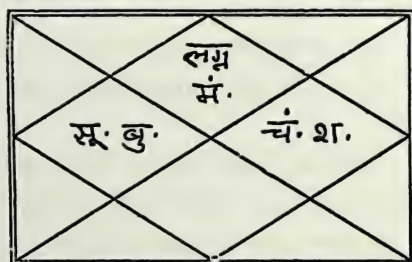 लग्न
मं.
सू. बु.
चं. श.